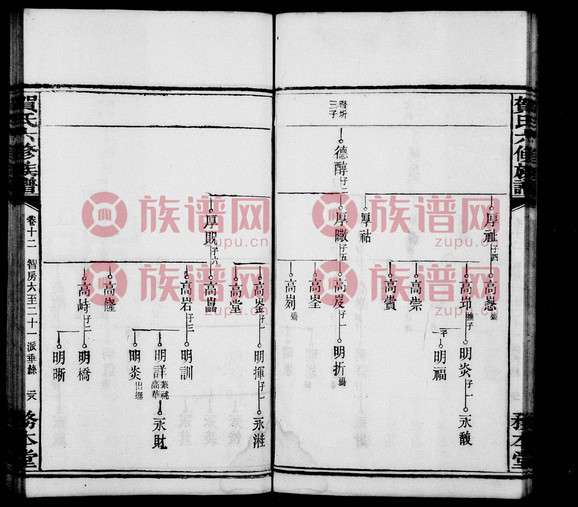 賀氏六修族譜
務本堂
三子
德醇 子二
厚祉 子四
厚祜
厚瞮 子五
厚 子六
高 殤
高崇
高貴
高岌 子一
高峑
高 殤
高崟 子一
高堂
高岩 子三
高嶐
高峙 子二
明炎 子一
明福
明折 殤
明揮 子一
明訓
明詳 兼祧高華
明炎 出撫
明橋
明晰
永馥
永
永財
賀氏六修族譜
卷十二
智房六至二十一派垂絲
務本堂
族谱网
zupu.cn